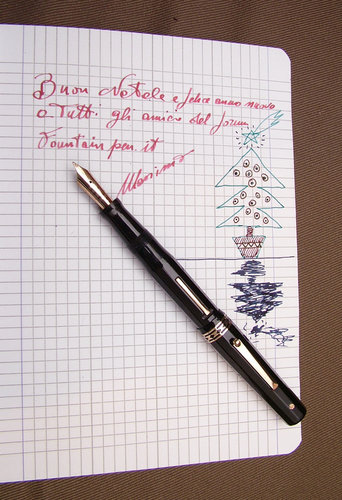 Buon Natale e felice anno nuovo
a Tutti gli amici del forum
Fountain pen it
Massimo